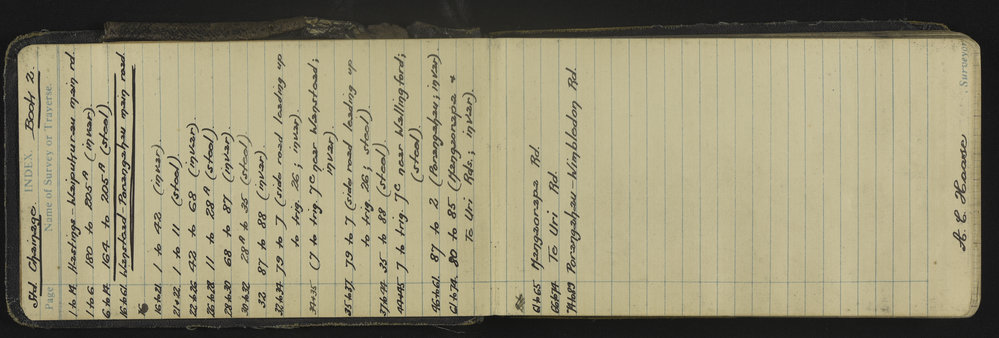 Std Chainage INDEX. Book 2.
Page Name of Survey or Traverse.
1 to 14. Hastings - Waipukurau main rd.
1 to 6. 180 to 205ᴬ (invar)
6 to 14. 164 to 205ᴬ (steel)
16 to 61. Wanstead - Porangahau main road.
16 to 21 1 to 42 (invar)
21 + 22. 1 to 11 (steel)
22 to 26 42 to 68 (invar)
26 to 28 11 to 28ᴬ (steel)
28 to 30 68 to 87 (invar)
30 to 32 28ᴬ to 35 (steel)
32 87 to 88 (invar)
32 to 34 J9 to J (side road leading up
to trig. 26; invar)
34 + 35 (J to trig Jᶜ near Wanstead;
invar)
35 to 37 J9 to J (side road leading up
to trig. 26; steel)
37 to 44 35 to 88 (steel)
44 + 45 J to trig Jᶜ near Wallingford;
(steel)
46 to 61. 87 to 2 (Porangahau; invar)
61 to 74. 80 to 85 (Mangaorapa +
Te Uri Rds.; invar)
61 to 65 Mangaorapa Rd.
66 to 74 Te Uri Rd.
74 to 89 Porangahau - Wimbledon Rd.
A. C. Haase
Surveyor